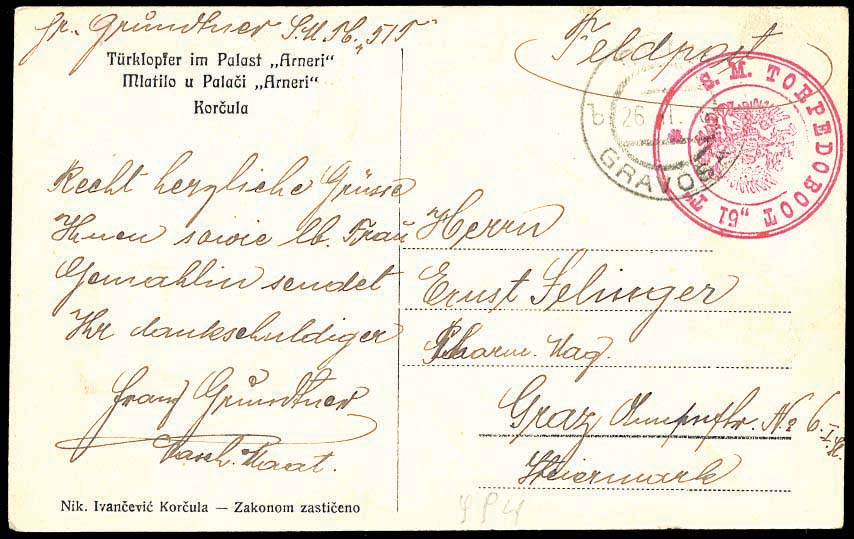 Fr. Grundtner S.M.Tb. „51T"
Türklopfer im Palast „Arneri"
Mlatilo u Palači „Arneri"
Korčula
Feldpost
26
GRAVOSA
S. M. TORPEDOBOOT
Recht herzliche Grüsse
Ihnen sowie lb. Frau
Gemahlin sendet
Ihr dankschuldiger
Franz Grundtner
Masch. Maat.
Herrn
Ernst Selinger
Pharm. Mag.
Graz № 6
Steiermark
Nik. Ivančević Korčula — Zakonom zastičeno